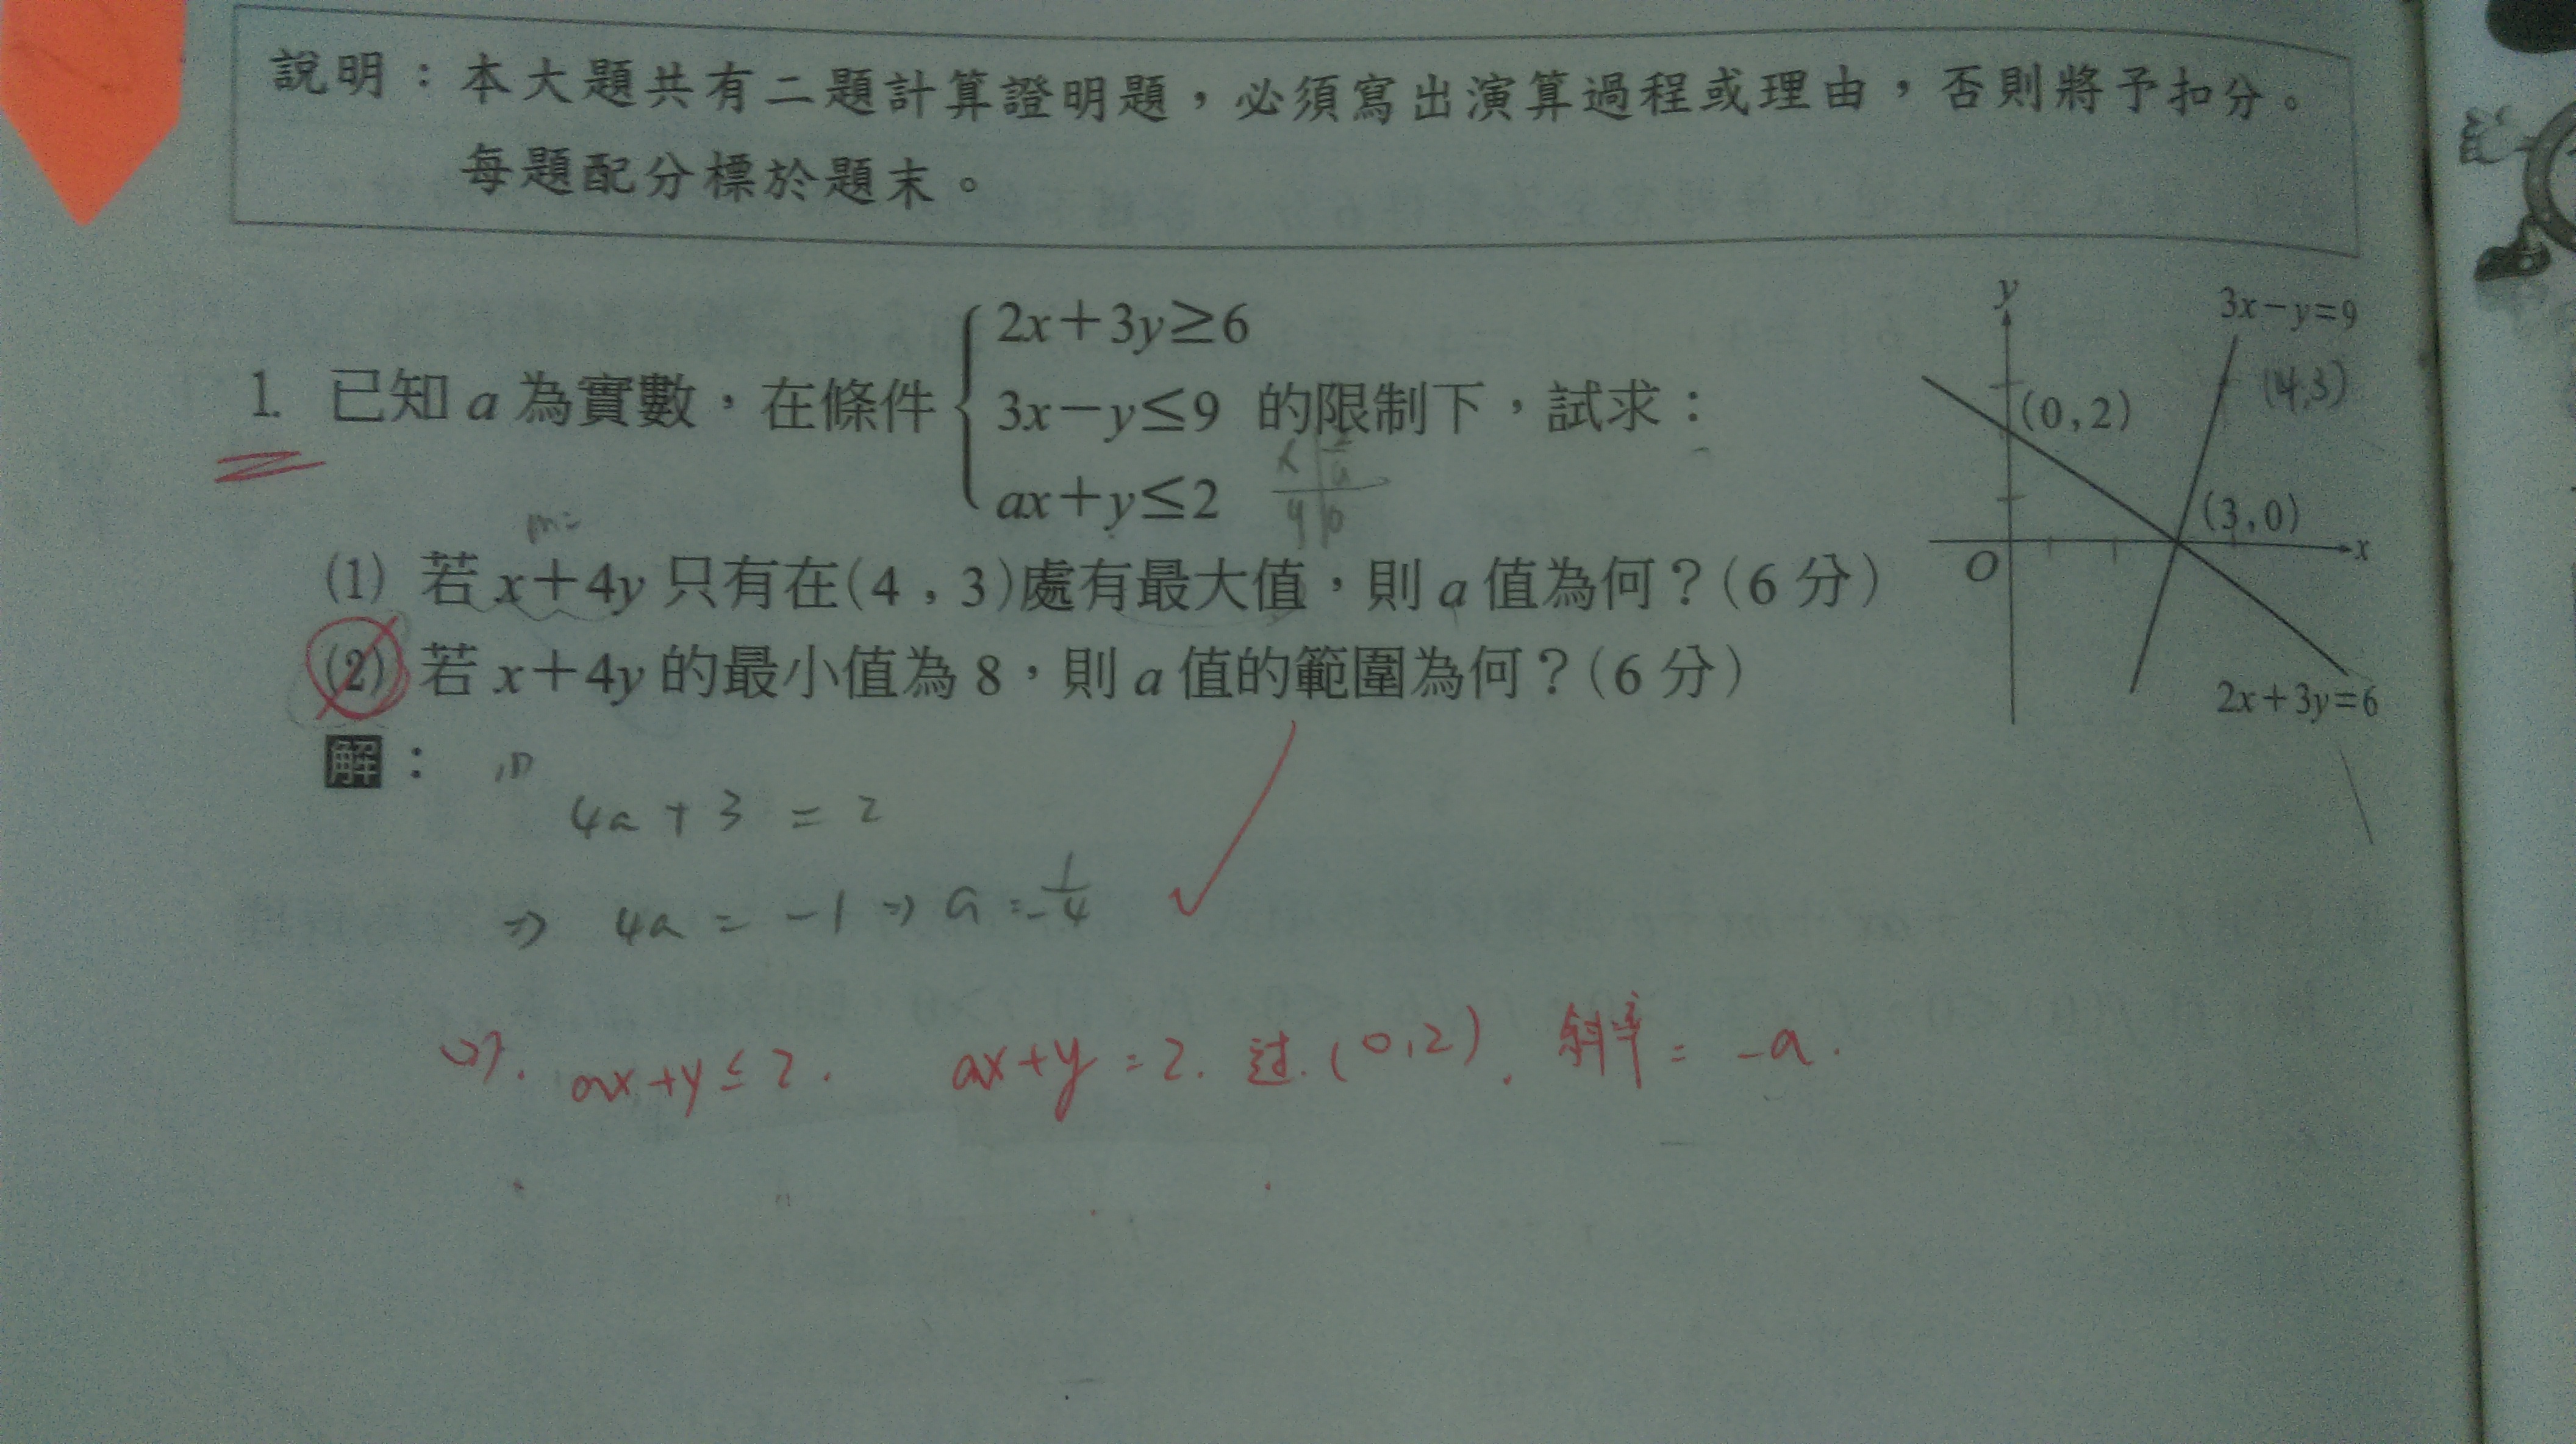 說明：本大題共有二題計算證明題，必須寫出演算過程或理由，否則將予扣分。
每題配分標於題末。
2x＋3y≥6
1. 已知 a 為實數，在條件 3x－y≤9 的限制下，試求：
ax＋y≤2
m=
(1) 若 x＋4y 只有在(4，3)處有最大值，則 a 值為何？(6 分)
(2) 若 x＋4y 的最小值為 8，則 a 值的範圍為何？(6 分)
y
3x－y=9
(4,3)
(0,2)
(3,0)
O
x
2x＋3y=6
解： (1)
4a + 3 = 2
⇒ 4a = -1 ⇒ a = -1/4
(2). ax+y≤2. ax+y=2. 过.(0,2). 斜率= -a.